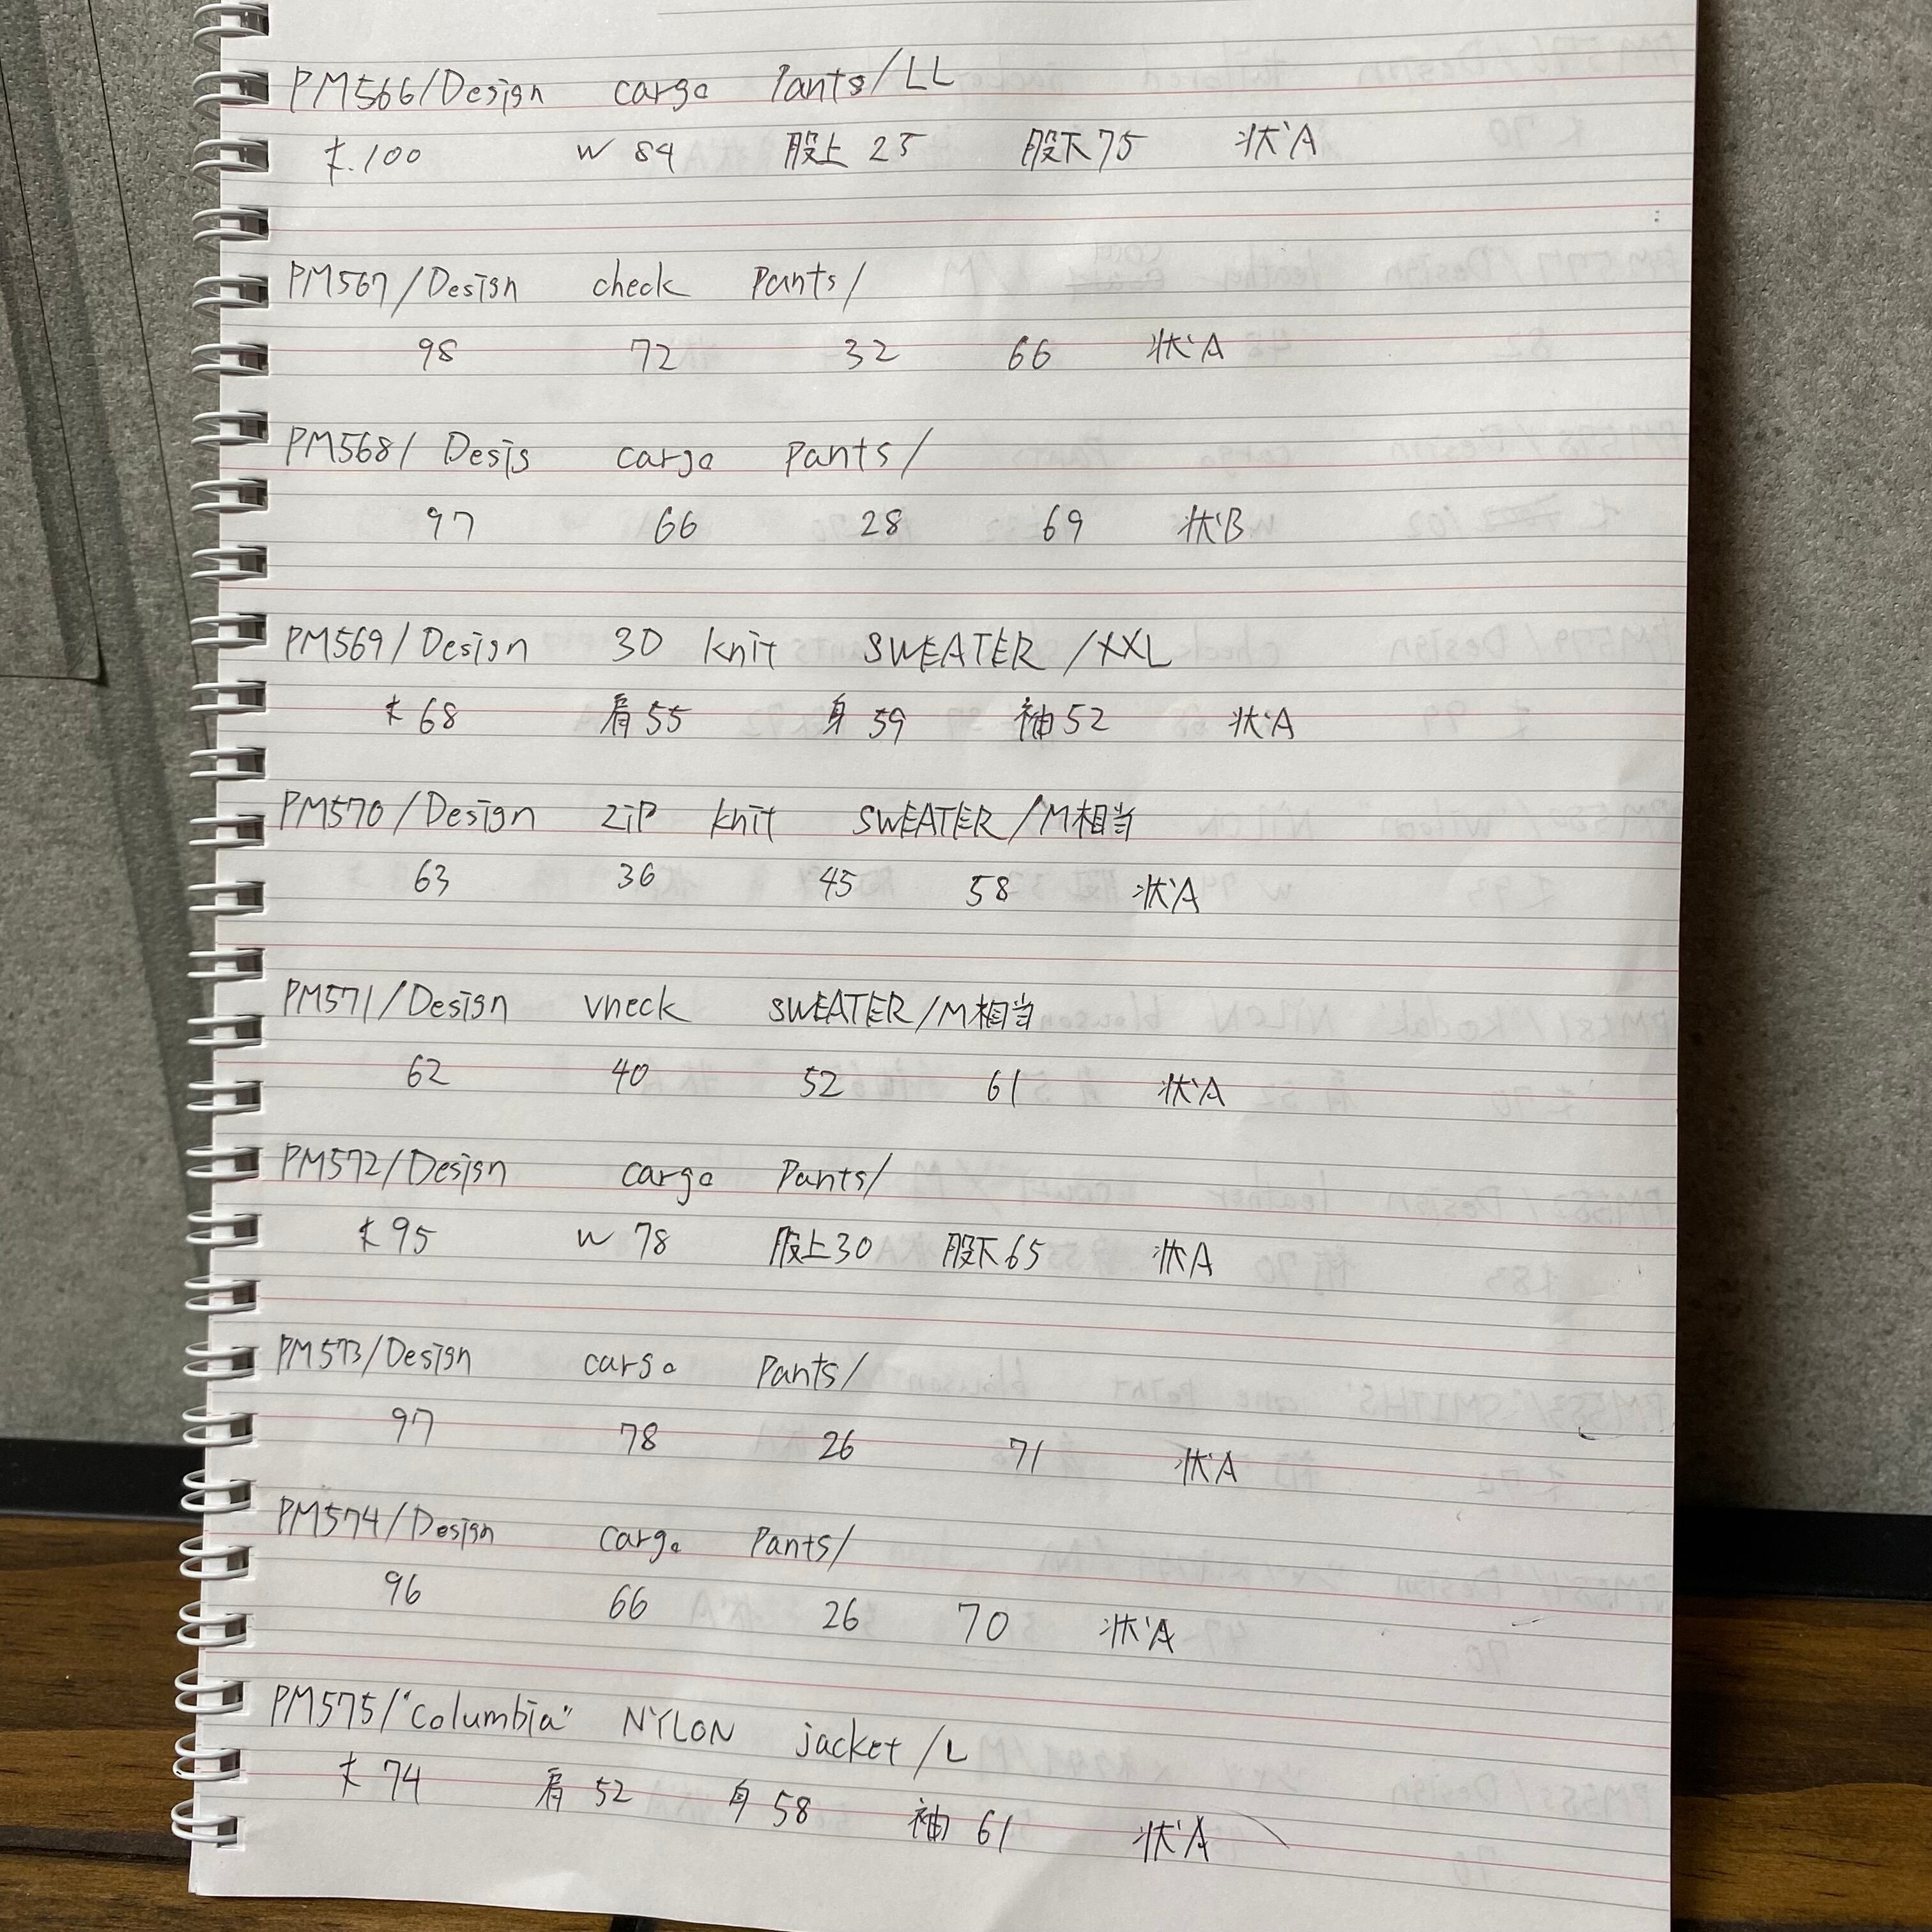 PM566/Design cargo Pants/LL
丈.100 W 84 股上 25 股下75 状A
PM567/Design check Pants/
98 72 32 66 状A
PM568/Desis cargo Pants/
97 66 28 69 状B
PM569/Design 3D knit SWEATER/XXL
丈68 肩55 身59 袖52 状A
PM570/Design ZiP knit SWEATER/M相当
63 36 45 58 状A
PM571/Design vneck SWEATER/M相当
62 40 52 61 状A
PM572/Design cargo Pants/
丈95 W 78 股上30 股下65 状A
PM573/Design cargo Pants/
97 78 26 71 状A
PM574/Design cargo Pants/
96 66 26 70 状A
PM575/"Columbia" NYLON jacket/L
丈74 肩52 身58 袖61 状A